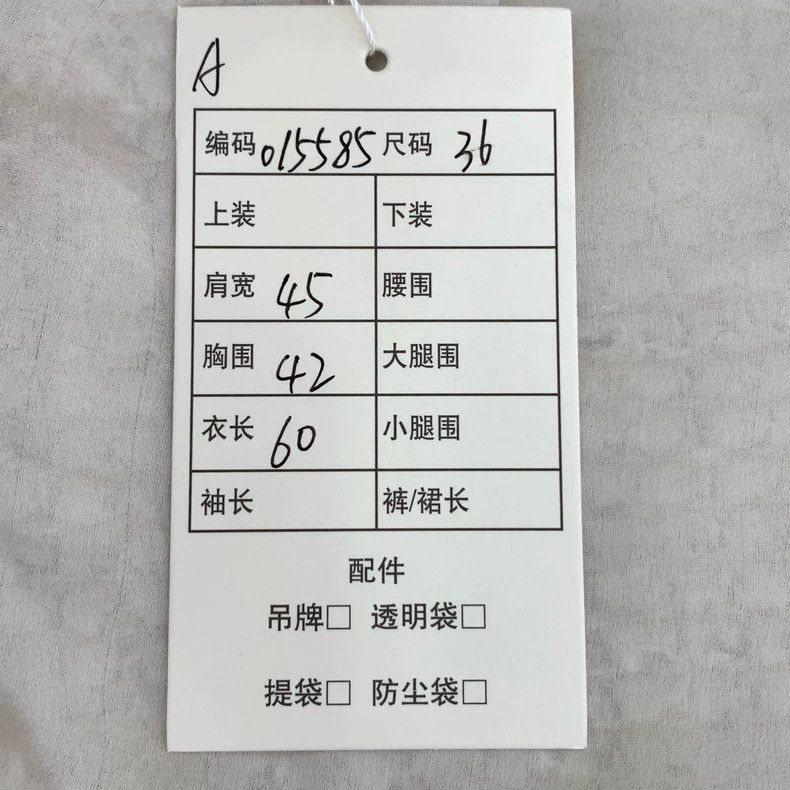 A
编码 015585 尺码 36
上装 下装
肩宽 45 腰围
胸围 42 大腿围
衣长 60 小腿围
袖长 裤/裙长
配件
吊牌□ 透明袋□
提袋□ 防尘袋□